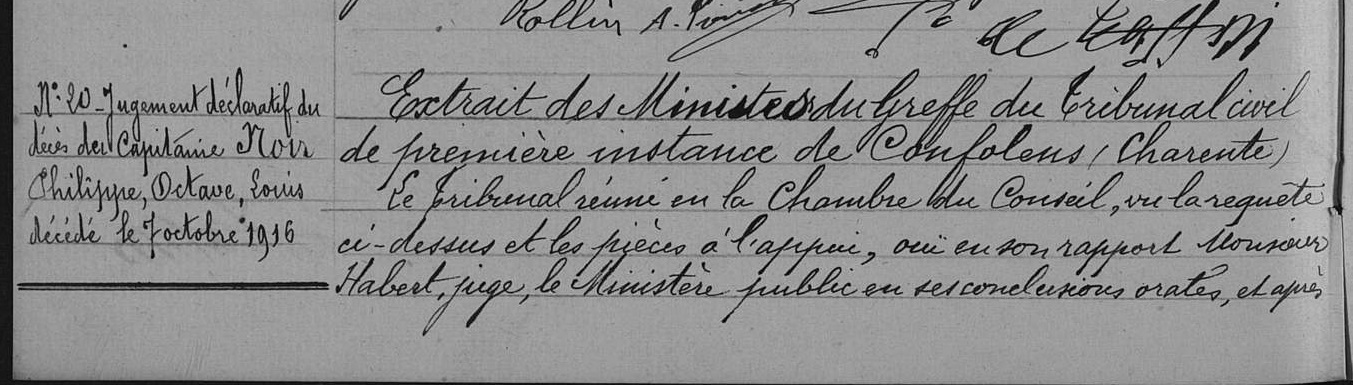 Rollin A.
de
N° 20 - Jugement déclaratif du
décès du Capitaine Noir
Philippe, Octave, Louis
décédé le 7 octobre 1916
Extrait des Minutes du Greffe du Tribunal civil
de première instance de Confolens (Charente)
Le Tribunal réuni en la Chambre du Conseil, vu la requête
ci-dessus et les pièces à l'appui, ouï en son rapport Monsieur
Habert, juge, le Ministère public en ses conclusions orales, et après